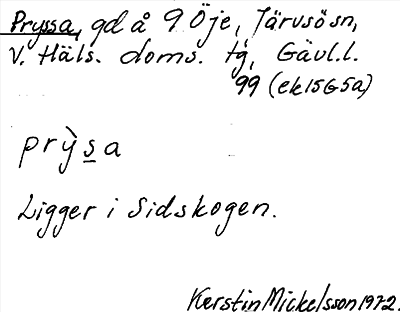 Pryssa, gd å 9 Öje, Järvsö sn,
V. Häls. doms. tg, Gävl. l.
99 (ek 15G5a)
prỳsa
Ligger i Sidskogen.
Kerstin Mickelsson 1972.